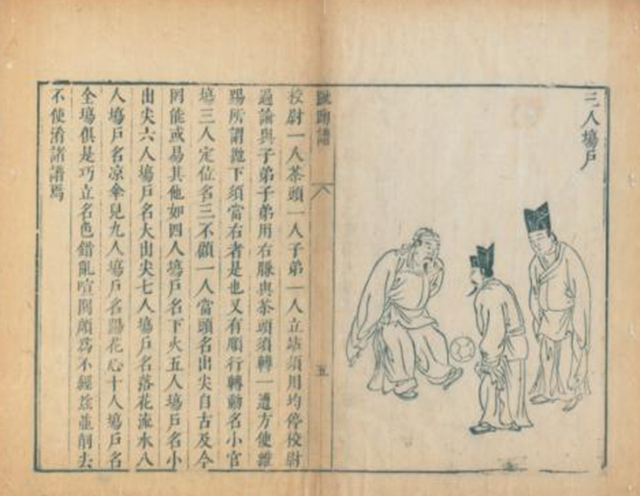 三人塲戶
蹴踘譜
五
校尉一人茶頭一人子弟一人立站須用均停校尉
過論與子弟子弟用右膁與茶頭須轉一遭方使雜
踢所謂拋下須當右者是也又有順行轉動名小官
塲三人定位名三不顧一人當頭名出尖自古及今
罔能或易其他如四人塲戶名下火五人塲戶名小
出尖六人塲戶名大出尖七人塲戶名落花流水八
人塲戶名涼傘兒九人塲戶名踢花心十人塲戶名
全塲俱是巧立名色錯亂喧鬧頗爲不經茲並削去
不使淆諸譜焉